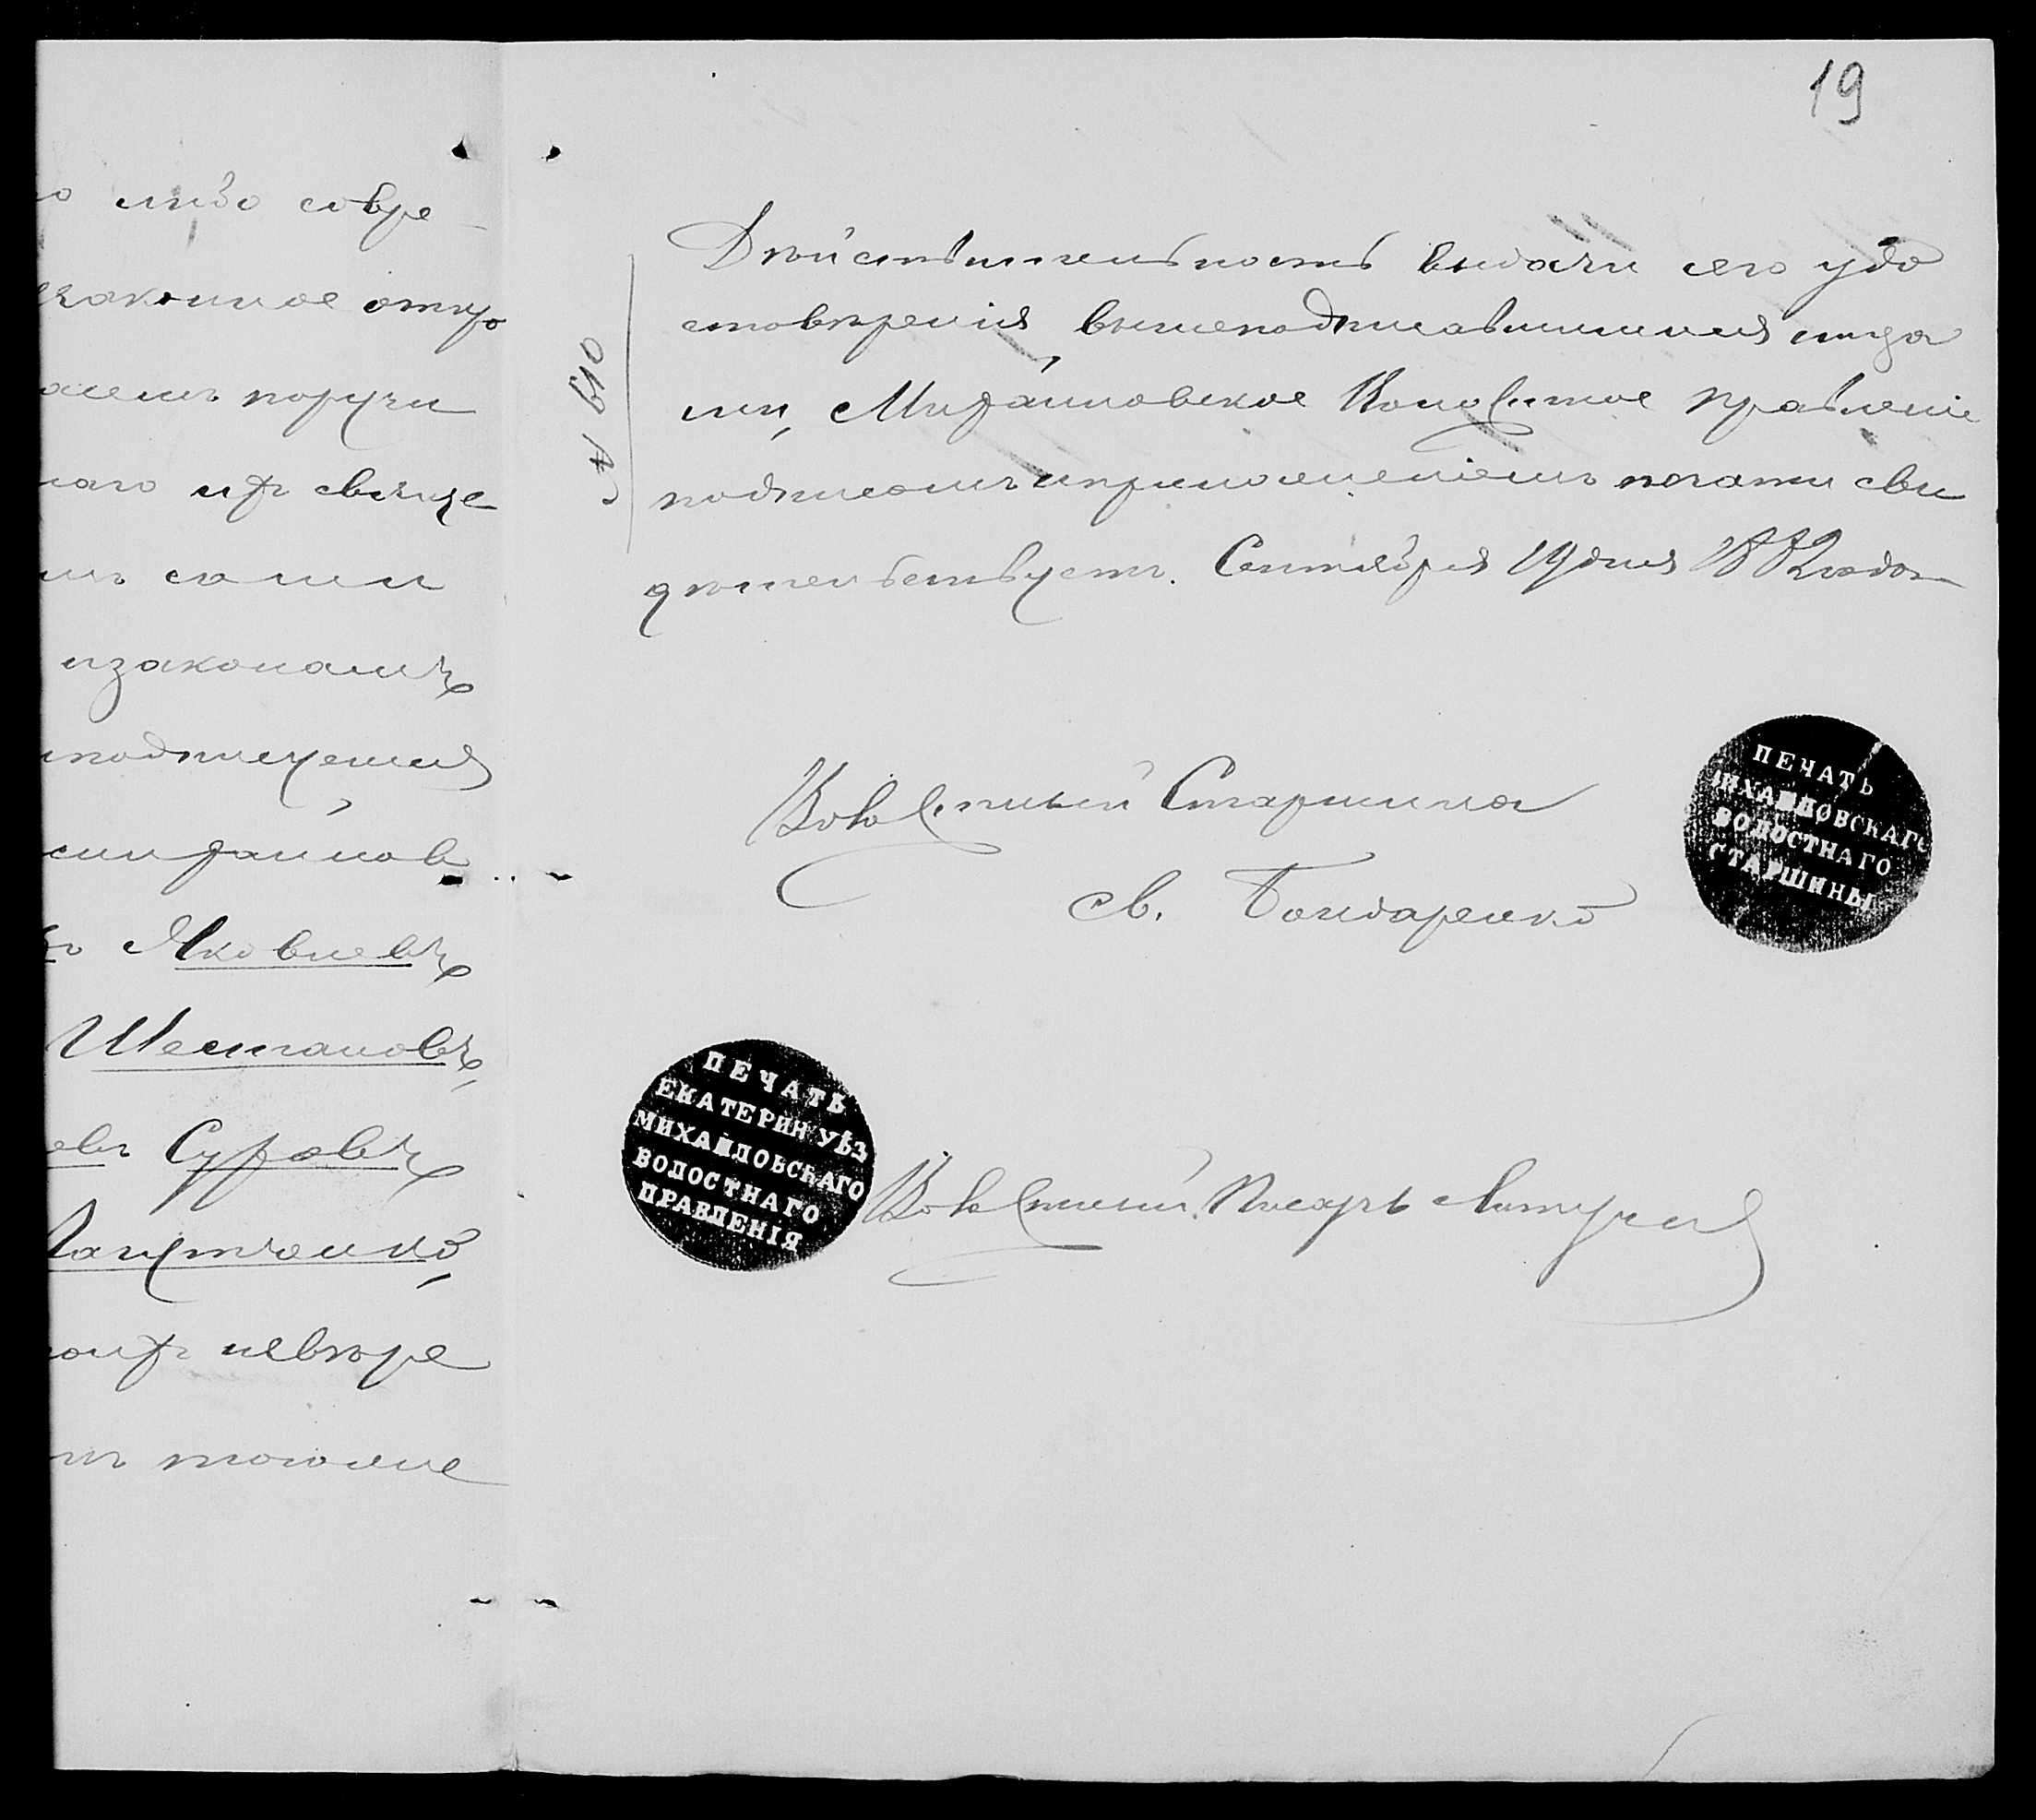 19
либо совре
законное отпр
поручи
наго ихъ свыше
сами
изаконамъ
подписуемся
михайлов
Яковлевъ
Шестаковъ,
евъ Суховъ
Лапутченко,
невѣре
тогоже
№ 610
Дѣйствительность выдачи сего удо
стовѣренія, вышеподписавшимися лица
ми, Михайловское Волостное Правленіе
подписомъ иприложеніемъ печати сви
дѣтельствуетъ. Сентября 19 дня 1882 года
Волостный Старшина
Бондаренко
ПЕЧАТЬ
МИХАЙЛОВСКАГО
ВОЛОСТНАГО
СТАРШИНЫ
ПЕЧАТЬ
ЕКАТЕРИН УѢЗ
МИХАЙЛОВСКАГО
ВОЛОСТНАГО
ПРАВЛЕНІЯ
Волостный Писарь